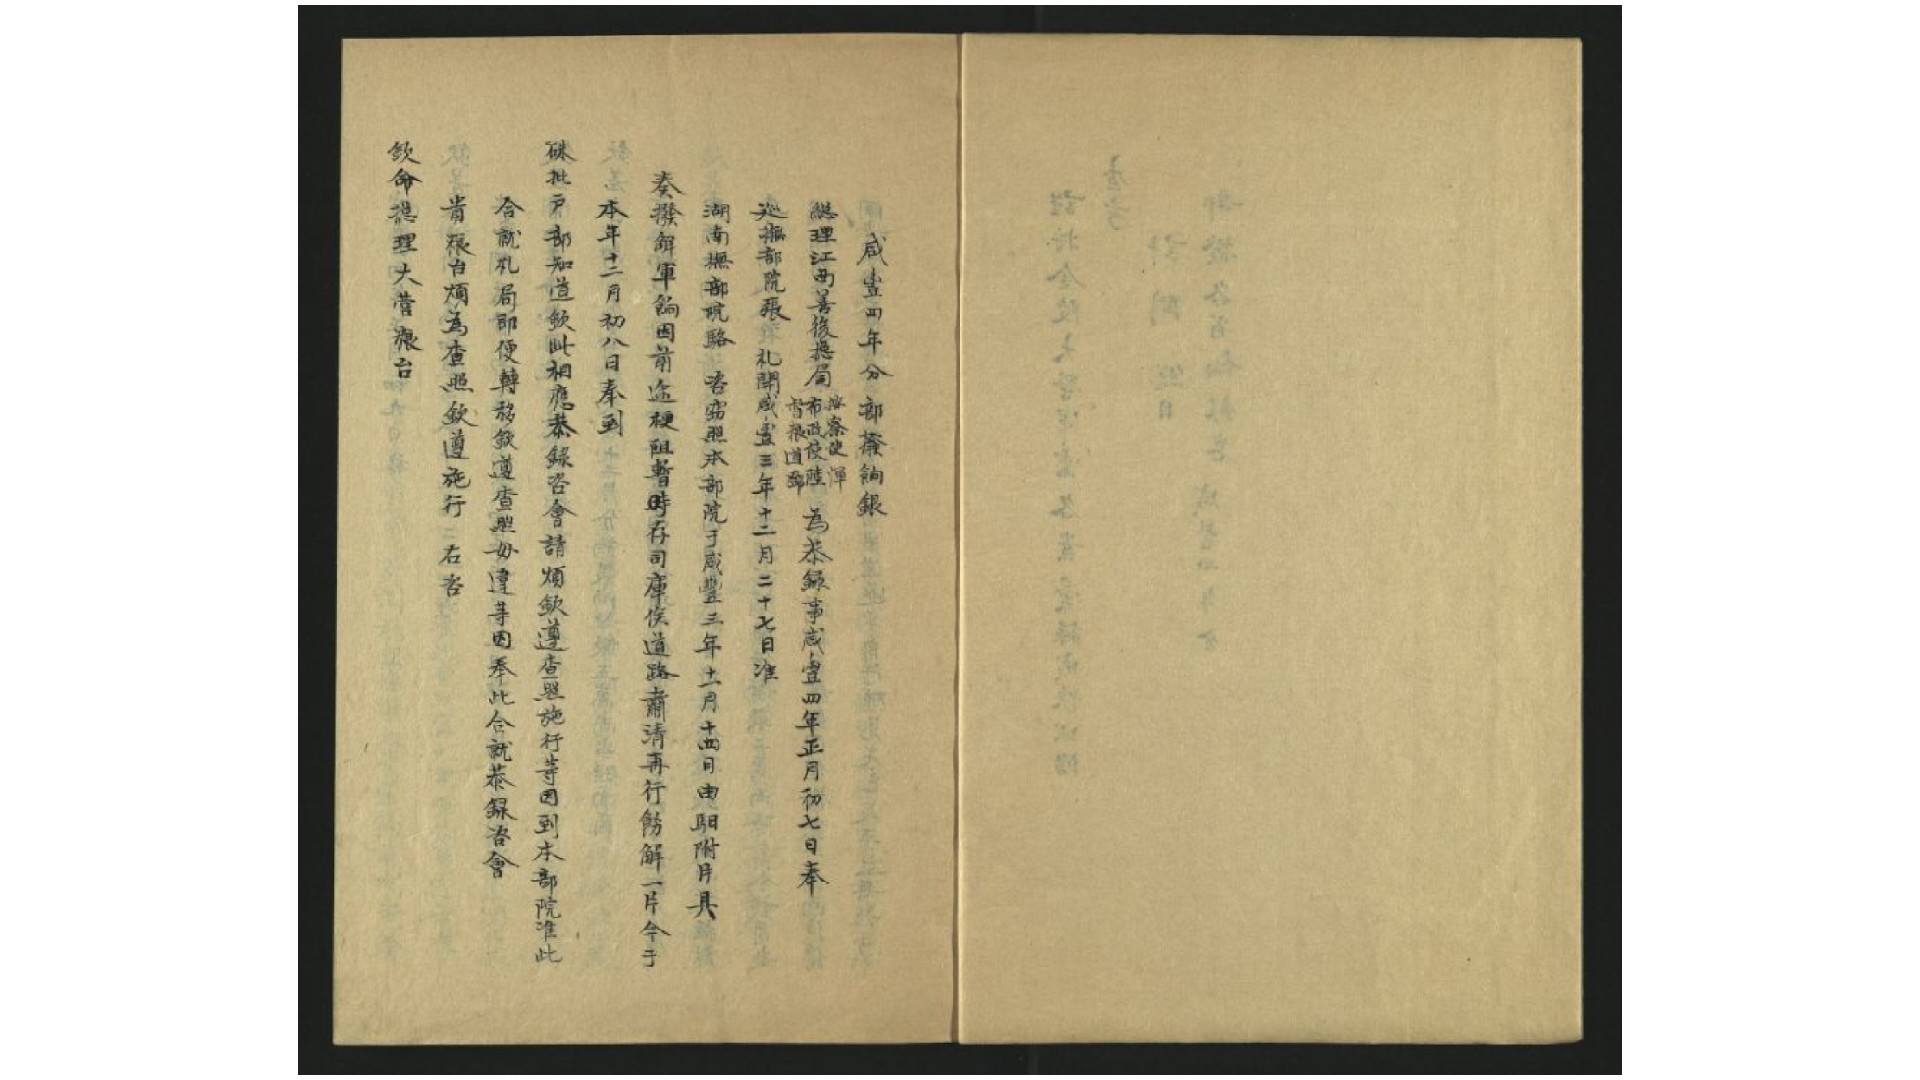 咸豐四年分部撥餉銀
總理江西善後總局按察使惲布政使陸督粮道鄧為恭録事咸豐四年正月初七日奉
巡撫部院張札開咸豐三年十二月二十七日准
湖南撫部院駱咨窃照本部院于咸豐三年十一月十四日由馹附片具
奏撥餉軍餉因前途梗阻暫時存司庫俟道路肅清再行餝解一片今于
本年十二月初八日奉到
硃批户部知道欽此相應恭録咨會請煩欽遵查照施行等因到本部院准此
合就札局即便轉移欽遵查照毋違等因奉此合就恭録咨會
貴粮台煩為查照欽遵施行右咨
欽命總理大營粮台